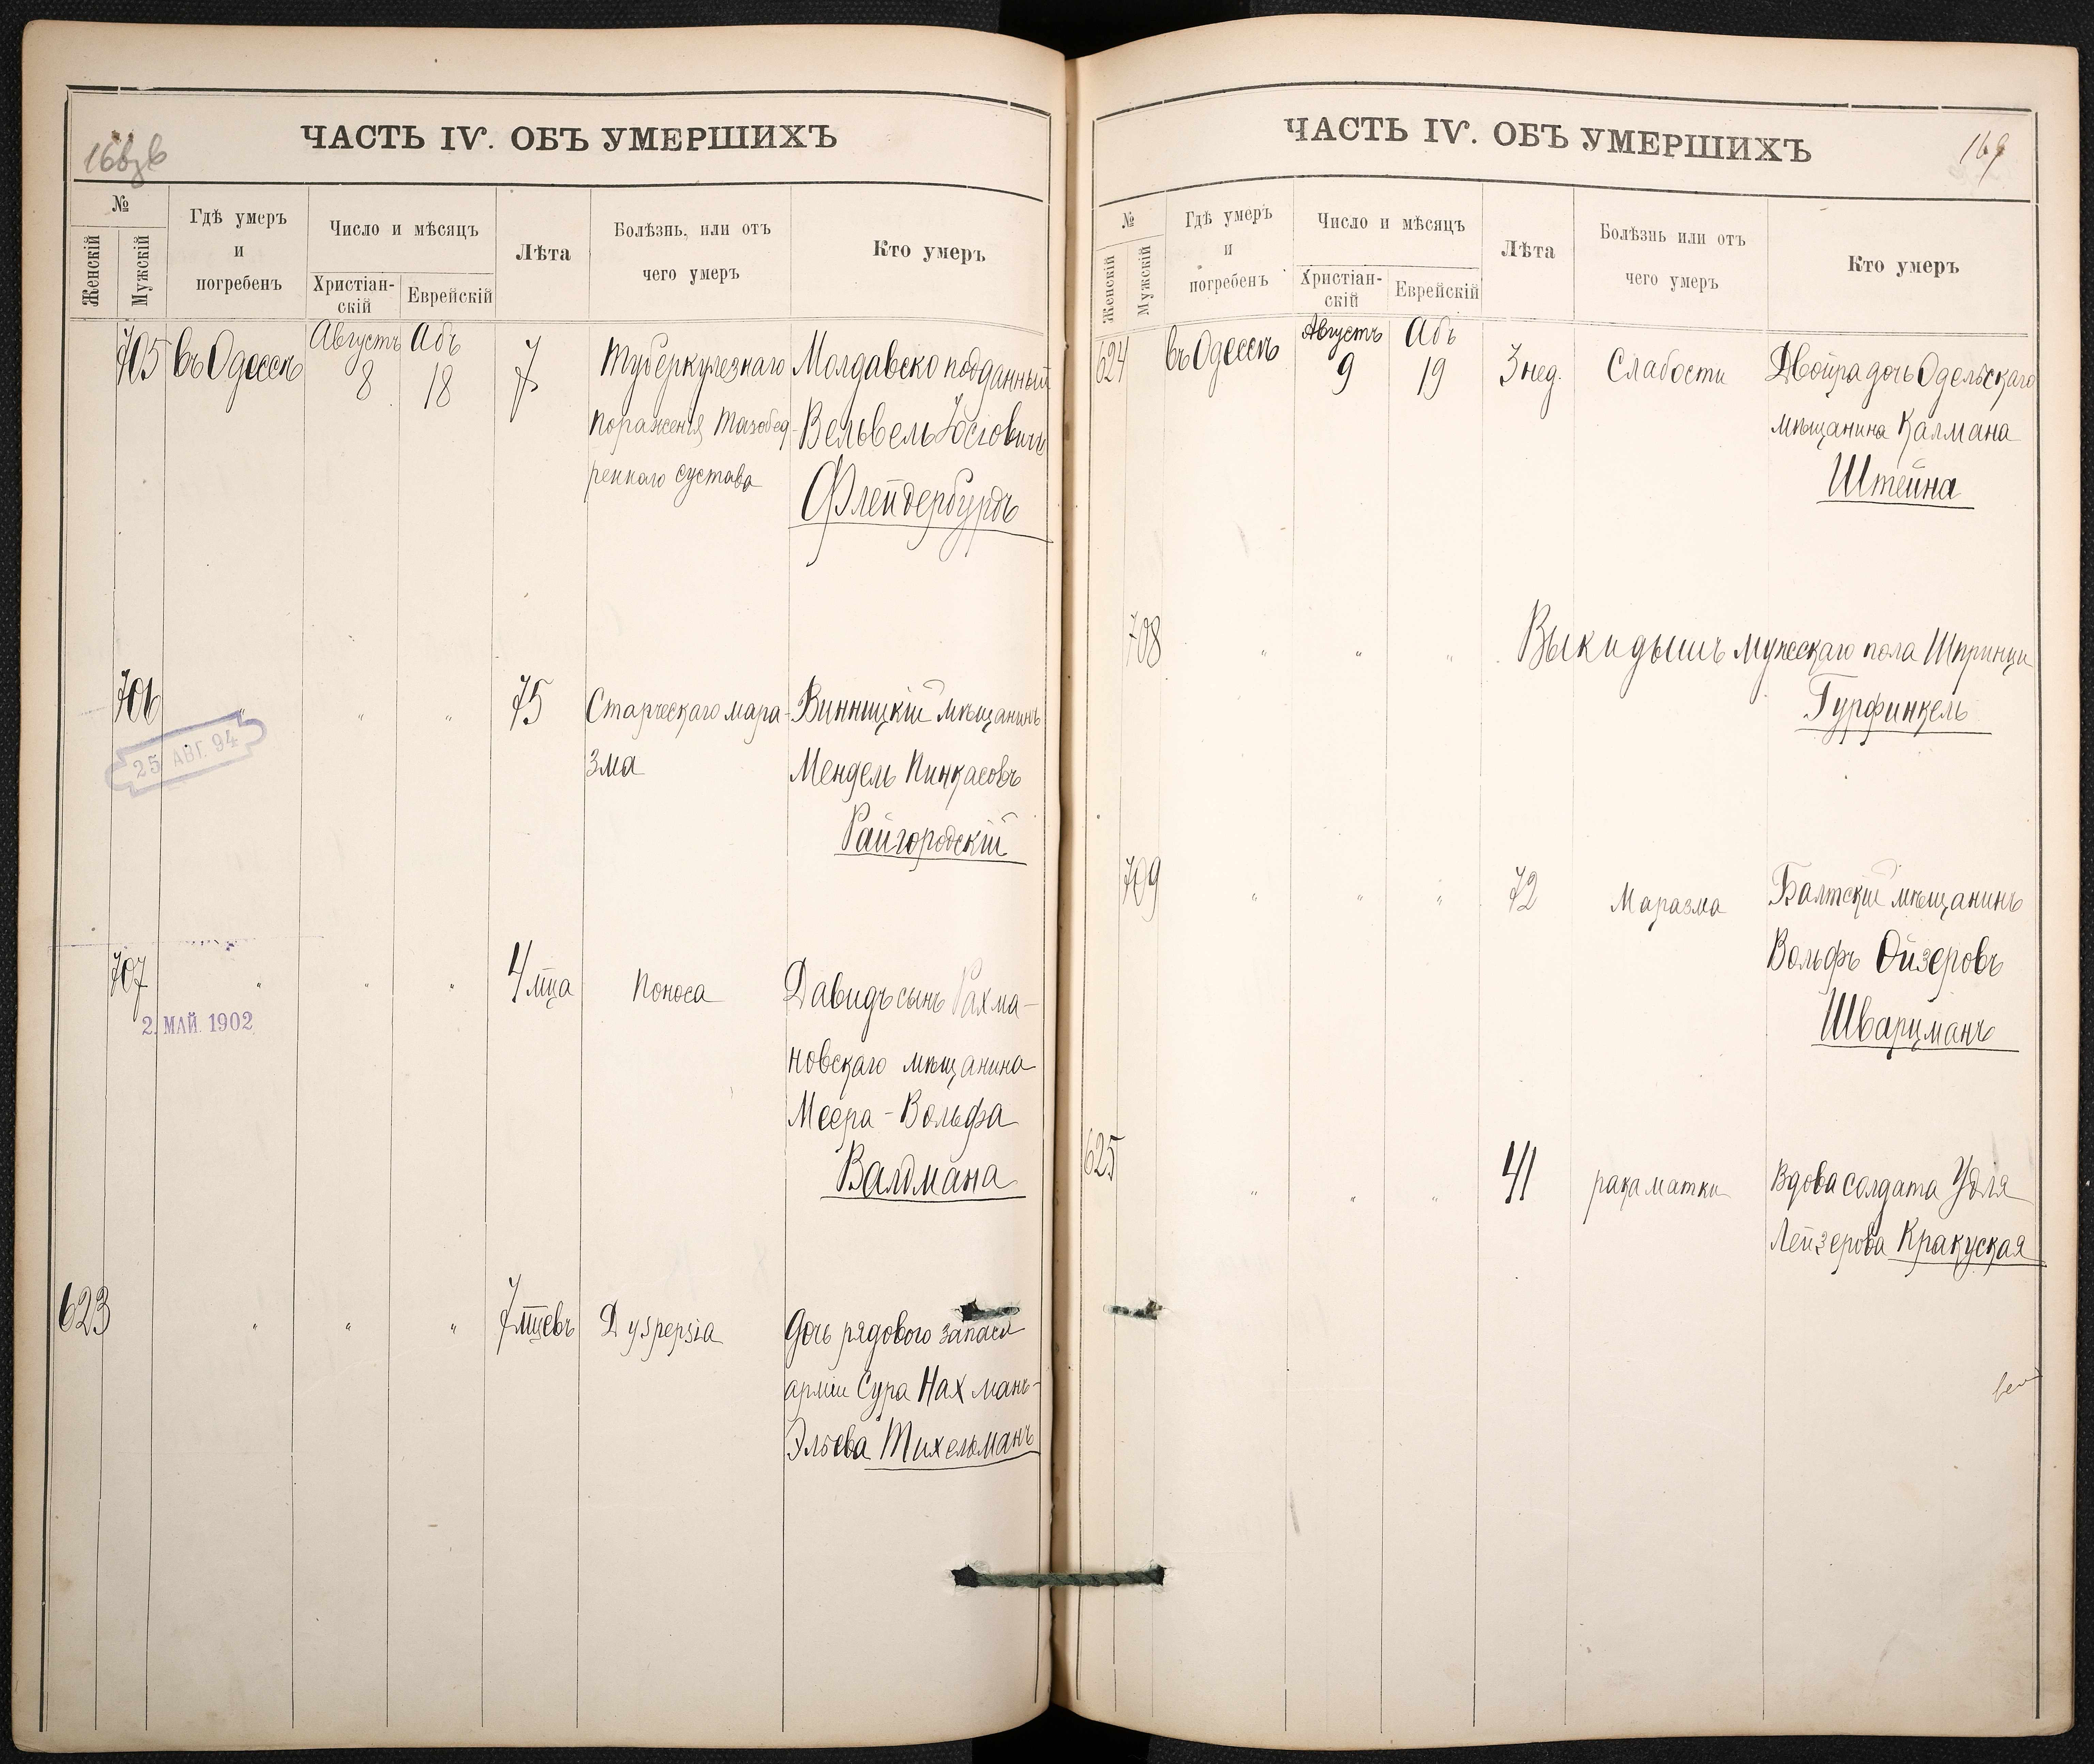 168об
ЧАСТЬ IV. ОБЪ УМЕРШИХЪ
№
Женскій
Мужскій
Гдѣ умеръ
и
погребенъ
Число и мѣсяцъ
Христіан-
скій
Еврейскій
Лѣта
Болѣзнь, или отъ
чего умеръ
Кто умеръ
705 въ Одессѣ Августъ Абъ 7 Туберкулезнаго Молдавско подданный
8 18 пораженія тазобед- Вельвель Іосіовичъ
реннаго сустава Флейдербурдъ
706 " " " 75 Старческаго мара- Винницкій мѣщанинъ
25 АВГ. 94
зма Мендель Пинкасовъ
Райгородскій
707 " " " 4 мца Поноса Давидъ сынъ Рахма-
2. МАЙ. 1902
новскаго мѣщанина
Меера-Вольфа
Валдмана
623 " " " 7 мцевъ Dyspepsia Дочь рядового запаса
арміи Сура Нахманъ-
Эльева Тихельманъ
ЧАСТЬ IV. ОБЪ УМЕРШИХЪ
169
№
Женскій
Мужскій
Гдѣ умеръ
и
погребенъ
Число и мѣсяцъ
Христіан-
скій
Еврейскій
Лѣта
Болѣзнь или отъ
чего умеръ
Кто умеръ
624 въ Одессѣ Августъ Абъ 3 нед. Слабости Двойра дочь Одельскаго
9 19 мѣщанина Калмана
Штейна
708 " " " Выкидышъ мужескаго пола Шпринци
Гурфинкель
709 " " " 72 Маразма Балтскій мѣщанинъ
Вольфъ Ойзеровъ
Шварцманъ
625 " " " 41 рака матки Вдова солдата Удля
Лейзерова Кракуская